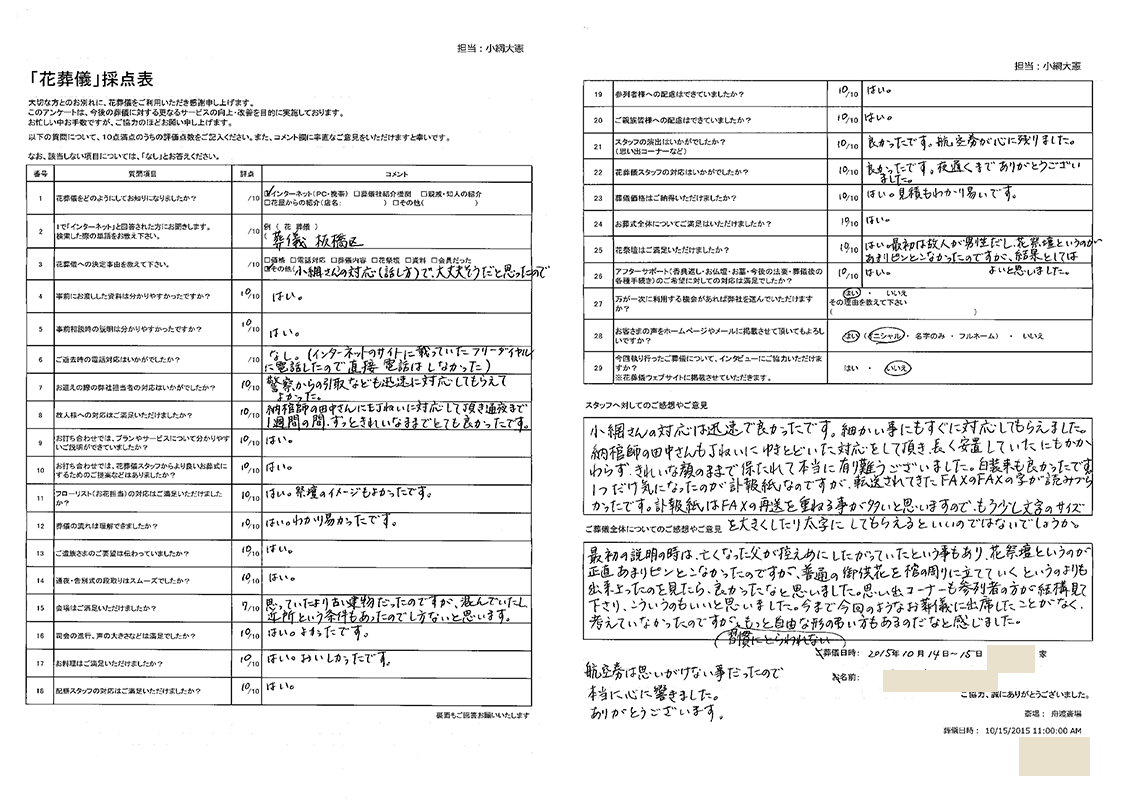 担当：小綱大憲
「花葬儀」採点表
大切な方とのお別れに、花葬儀をご利用いただき感謝申し上げます。
このアンケートは、今後の葬儀に対する更なるサービスの向上・改善を目的に実施しております。
お忙しい中お手数ですが、ご協力のほどお願い申し上げます。
以下の質問について、10点満点のうちの評価点数をご記入ください。また、コメント欄に率直なご意見をいただけますと幸いです。
なお、該当しない項目については、「なし」とお答えください。
番号 質問項目 評点 コメント
1 花葬儀をどのようにしてお知りになりましたか？ /10 ☑インターネット（PC・携帯） □葬儀社紹介機関 □親戚・知人の紹介
□花屋からの紹介（店名： ） □その他（ ）
2 1で「インターネット」と回答された方にお聞きします。
検索した際の単語をお教え下さい。 /10 例（ 花 葬儀 ）
（ 葬儀 板橋区
3 花葬儀への決定事由を教えて下さい。 /10 □価格 □電話対応 □葬儀内容 □花祭壇 □資料 □会員だった
☑その他（小綱さんの対応（話し方）で、大丈夫そうだと思ったので
4 事前にお渡しした資料は分かりやすかったですか？ 10/10 はい。
5 事前相談時の説明は分かりやすかったですか？ 10/10 はい。
6 ご逝去時の電話対応はいかがでしたか？ /10 なし。（インターネットのサイトに載っていたフリーダイヤル
に電話したので直接電話はしなかった）
7 お迎えの際の弊社担当者の対応はいかがでしたか？ 10/10 警察からの引取なども迅速に対応してもらえて
よかった。
8 故人様への対応はご満足いただけましたか？ 10/10 納棺師の田中さんにも丁ねいに対応して頂き通夜まで
1週間の間、ずっときれいなままでとても良かったです。
9 お打ち合わせでは、プランやサービスについて分かりやす
いご説明ができていましたか？ 10/10 はい。
10 お打ち合わせでは、花葬儀スタッフからより良いお葬式に
するためのご提案などはありましたか？ 10/10 はい。
11 フローリスト（お花担当）の対応はご満足いただけました
か？ 10/10 はい。祭壇のイメージもよかったです。
12 葬儀の流れは理解できましたか？ 10/10 はい。わかり易かったです。
13 ご遺族さまのご要望は伝わっていましたか？ 10/10 はい。
14 通夜・告別式の段取りはスムーズでしたか？ 10/10 はい。
15 会場はご満足いただけましたか？ 7/10 思っていたより古い建物だったのですが、混んでいたし
近所という条件もあったので仕方ないと思います。
16 司会の進行、声の大きさなどは満足でしたか？ 10/10 はい。よかったです。
17 お料理はご満足いただけましたか？ 10/10 はい。おいしかったです。
18 配膳スタッフの対応はご満足いただけましたか？ 10/10 はい。
裏面もご回答お願いいたします
担当：小綱大憲
19 参列者様への配慮はできていましたか？ 10/10 はい。
20 ご親族皆様への配慮はできていましたか？ 10/10 はい。
21 スタッフの演出はいかがでしたか？
（思い出コーナーなど） 10/10 良かったです。航空券が心に残りました。
22 花葬儀スタッフの対応はいかがでしたか？ 10/10 良かったです。夜遅くまでありがとうござい
ました。
23 葬儀価格はご納得いただけましたか？ 10/10 はい。見積もわかり易いです。
24 お葬式全体についてご満足はいただけましたか？ 10/10 はい。
25 花祭壇はご満足いただけましたか？ 10/10 はい。最初は故人が男性だし、花祭壇というのが
あまりピンとこなかったのですが、結果としては
よいと思いました。
26 アフターサポート（香典返し・お仏壇・お墓・今後の法要・葬儀後の
各種手続き）のご希望に対しての対応は満足でしたか？ 10/10 はい。
27 万が一次に利用する機会があれば弊社を選んでいただけます
か？ はい ・ いいえ
その理由を教えて下さい
（ ）
28 お客さまの声をホームページやメールに掲載させて頂いてもよろし
いですか？ はい （イニシャル ・ 名字のみ ・ フルネーム） ・ いいえ
29 今回執り行ったご葬儀について、インタビューにご協力いただけま
すか？
※花葬儀ウェブサイトに掲載させていただきます。 はい ・ いいえ
スタッフへ対してのご感想やご意見
小綱さんの対応は迅速で良かったです。細かい事にもすぐに対応してもらえました。
納棺師の田中さんも丁ねいにゆきとどいた対応をして頂き、長く安置していたにもかか
わらず、きれいな顔のままで保たれて本当に有り難うございました。白装束も良かったです。
1つだけ気になったのが訃報紙なのですが、転送されてきたFAXのFAXの字が読みづら
かったです。訃報紙はFAXの再送を重ねる事が多いと思いますので、もう少し文字のサイズ
を大きくしたり太字にしてもらえるといいのではないでしょうか。
ご葬儀全体についてのご感想やご意見
最初の説明の時は、亡くなった父が控えめにしたがっていたという事もあり、花祭壇というのが
正直あまりピンとこなかったのですが、普通の御供花を棺の周りに立てていくというのよりも
出来上ったのを見たら、良かったなと思いました。思い出コーナーも参列者の方が結構見て
下さり、こういうのもいいと思いました。今まで今回のようなお葬儀に出席したことがなく、
考えていなかったのですが、もっと自由な形の弔い方もあるのだなと感じました。
（習慣にとらわれない）
葬儀日時： 2015年10月14日～15日 家
お名前：
航空券は思いがけない事だったので
本当に心に響きました。
ありがとうございます。
ご協力、誠にありがとうございました。
斎場： 舟渡斎場
葬儀日時： 10/15/2015 11:00:00 AM